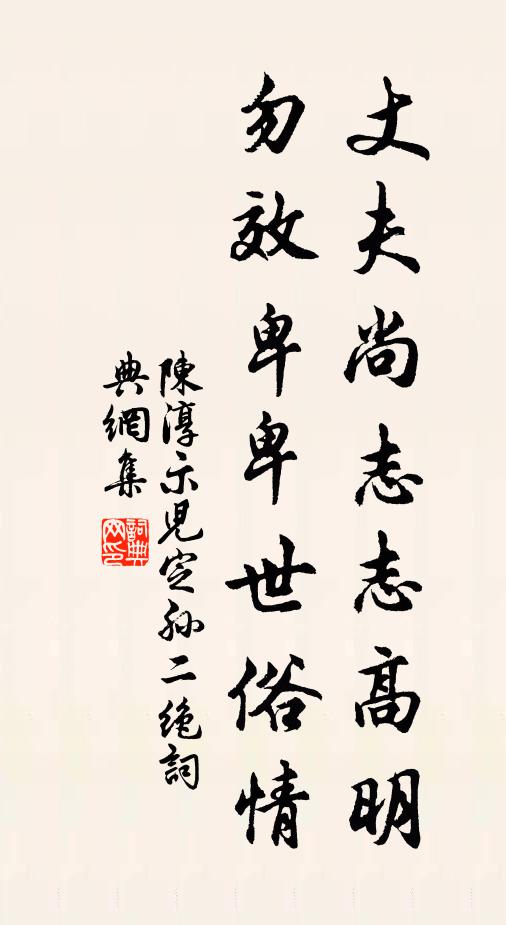 丈夫尚志志高明
勿效卑卑世俗情
陳淳示兒定孫二绝詞
典網集
詞典
网印